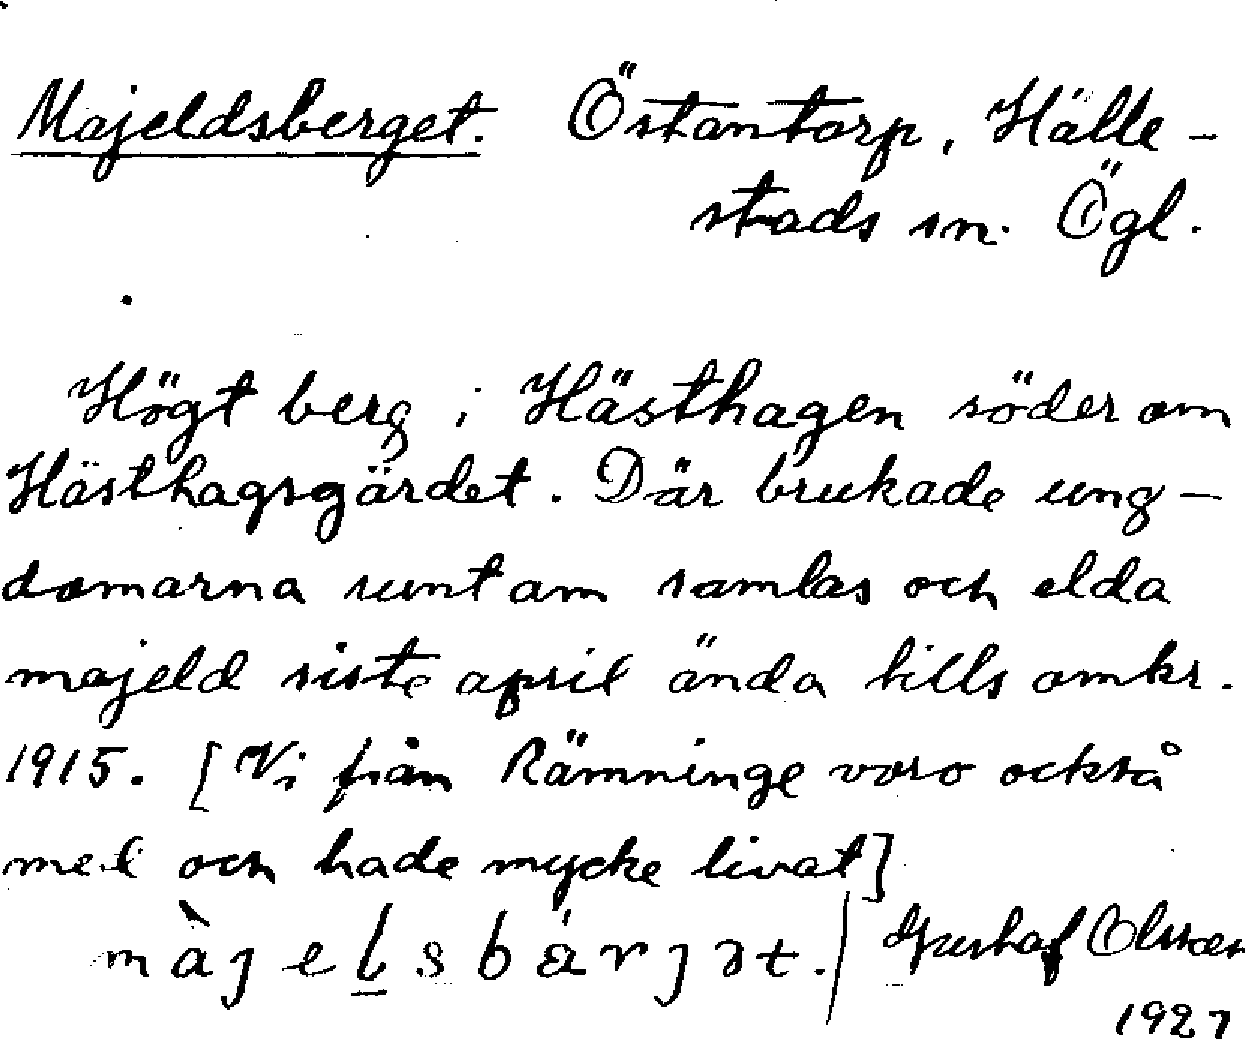 Majeldsberget. Östantorp, Hälle-
stads sn. Ögl.
Högt berg i Hästhagen söder om
Hästhagsgärdet. Där brukade ung-
domarna runtom samlas och elda
majeld siste april ända tills omkr.
1915. [Vi från Rämninge voro också
med och hade mycke livat]
màjelsbárjət. / Gustaf Olsson
1927